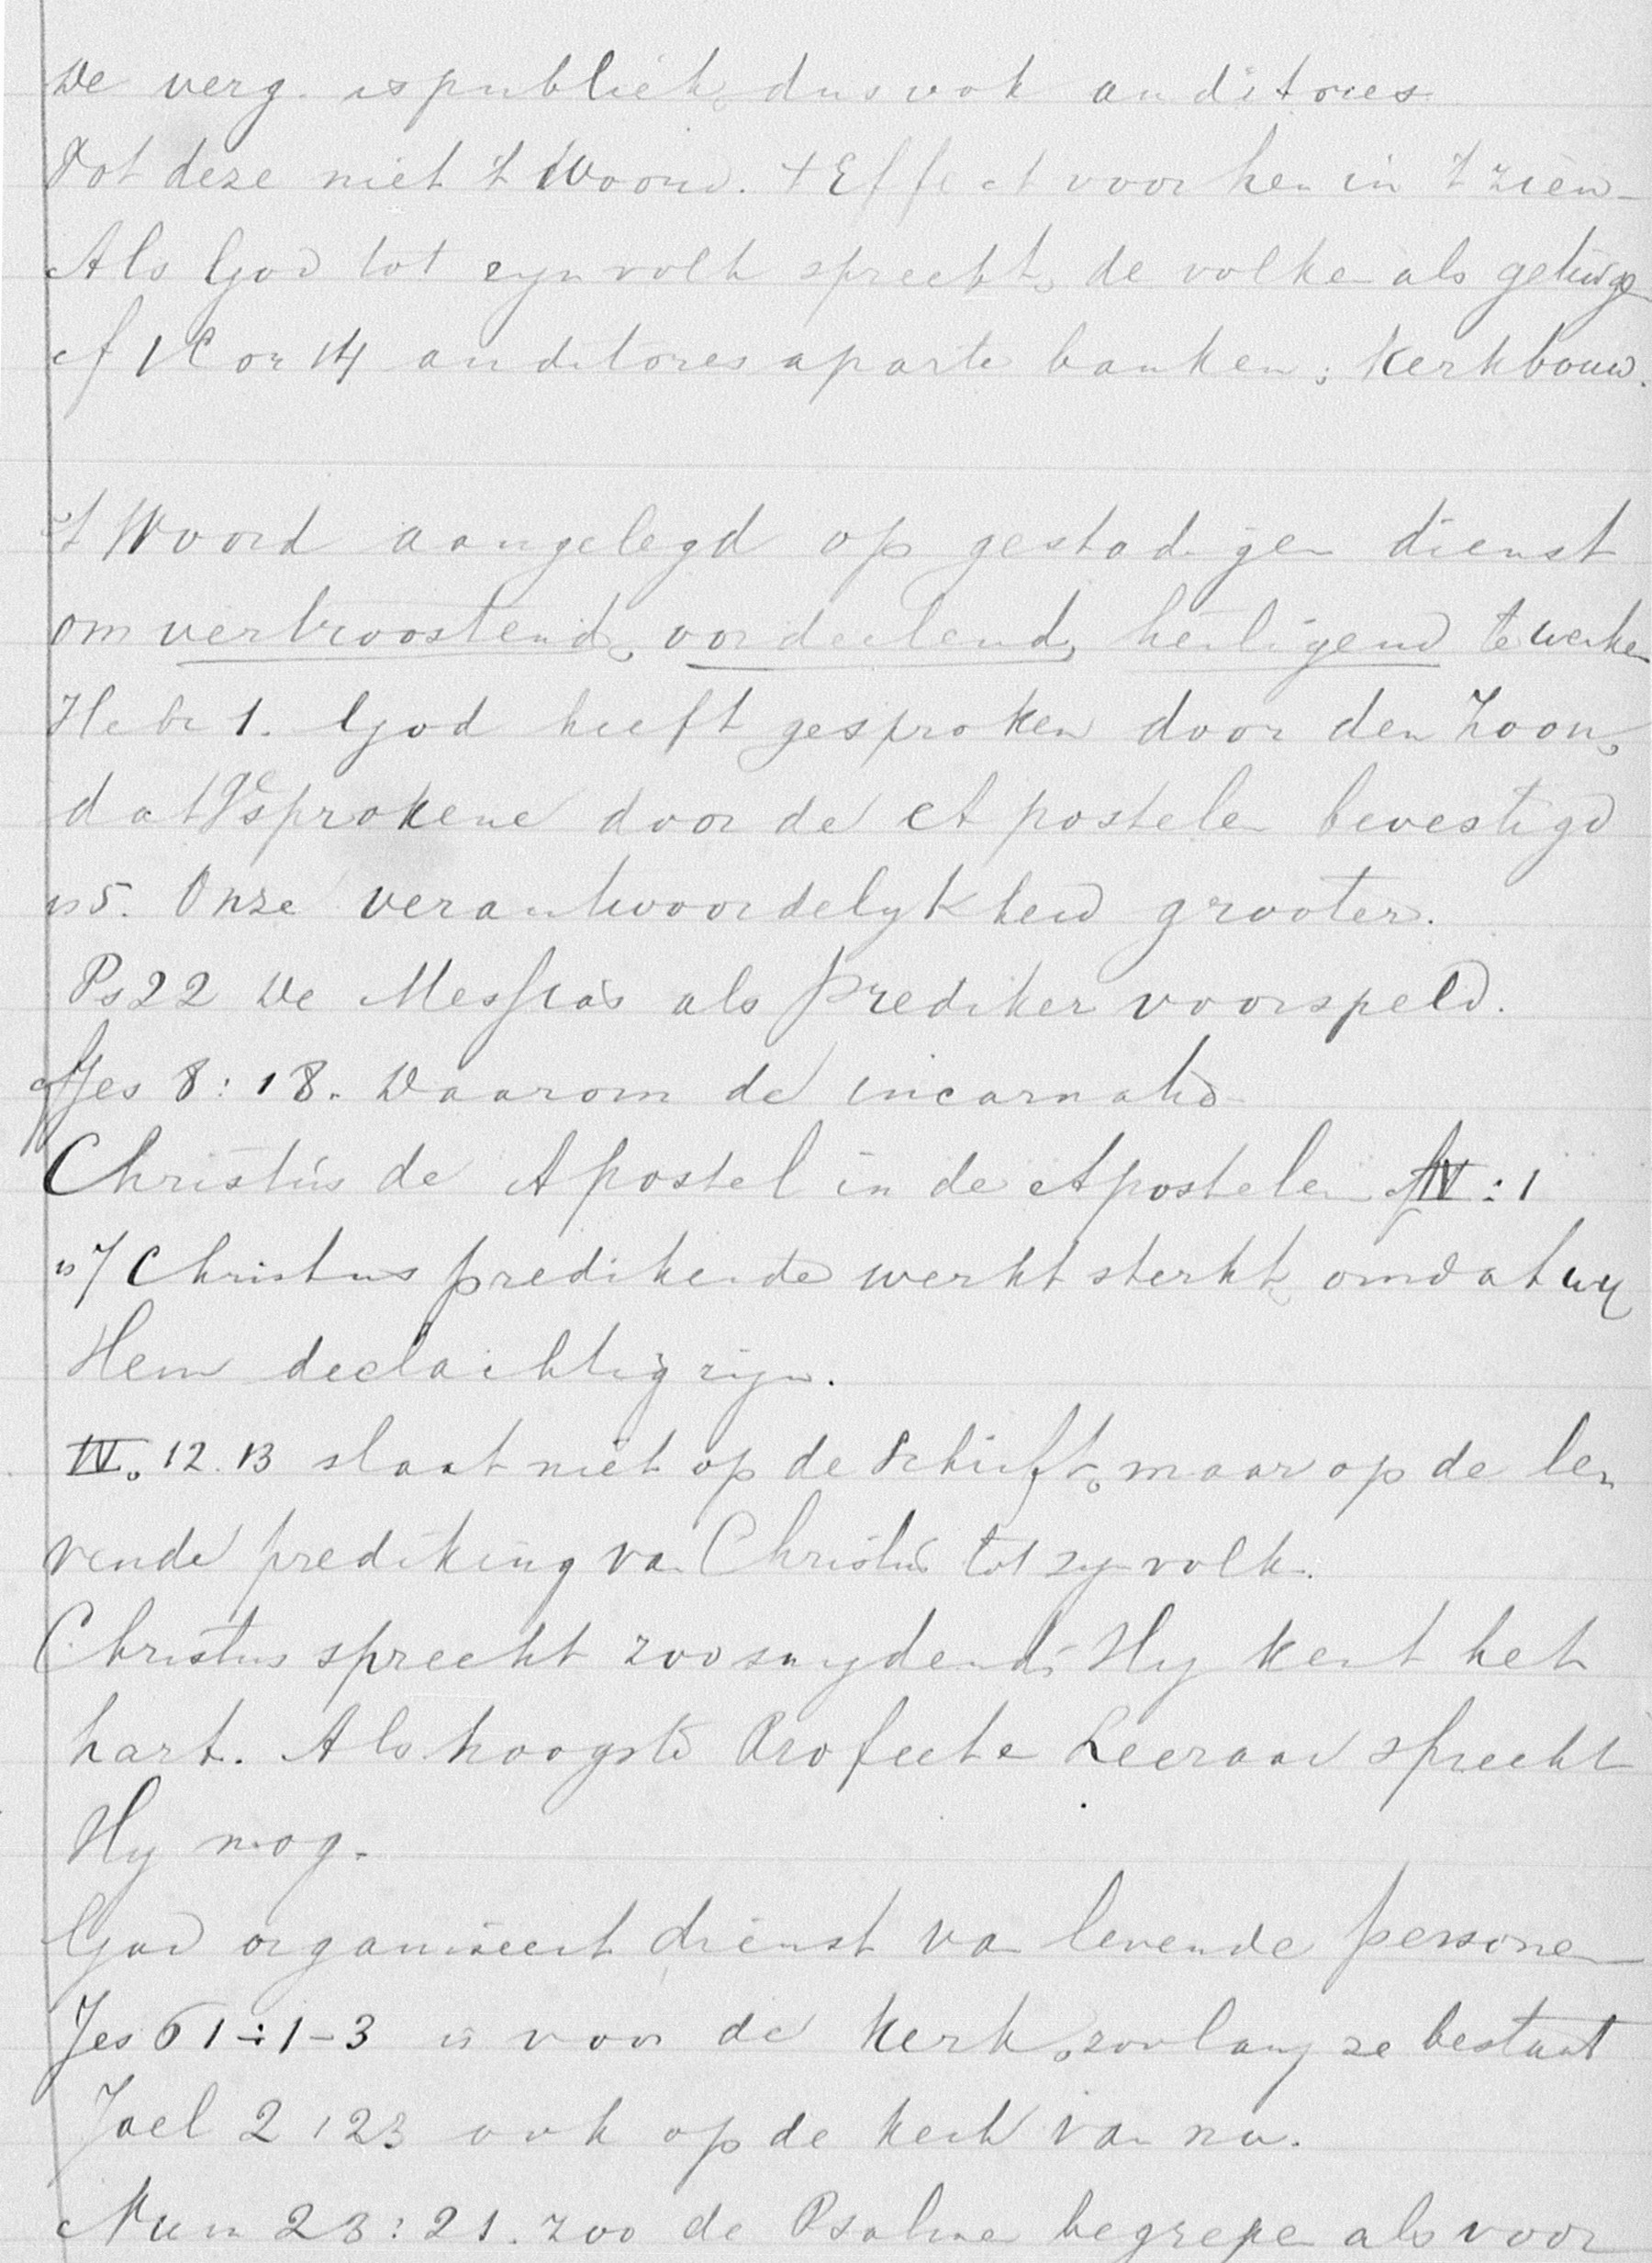 De verg. is publiek, dus ook auditores.
Tot deze niet 't Woord. 't Effect voor hen in 't zien
Als God tot zyn volk spreekt, de volken als getuige
cf 1 Cor 14 auditores aparte banken; Kerkbouw.
't Woord aangelegd op gestadigen dienst
om vertroostend, oordeelend, heiligend te werken
Hebr 1. God heeft gesproken door den Zoon,
dat gesprokene door de Apostelen bevestigd
vs 5. Onze verantwoordelykheid grooter.
Ps 22 De Messias als prediker voorspeld.
cf Jes 8:18. Daarom de incarnatio
Christus de Apostel in de Apostelen cf IV:1
vs 7 Christus predikende werkt sterk, omdat wy
Hem deelachtig zyn.
IV. 12.13 slaat niet op de Schrift, maar op de le
vende prediking van Christus tot zyn volk.
Christus spreekt zoo snydend; Hy kent het
hart. Als hoogste Profeet en Leeraar spreekt
Hy nog.
God organiseert dienst van levende personen
Jes 61:1-3 is voor de Kerk, zoolang ze bestaat
Joel 2:23 ook op de kerk van nu.
Num 23:21. zoo de Psalmen begrepen als voor